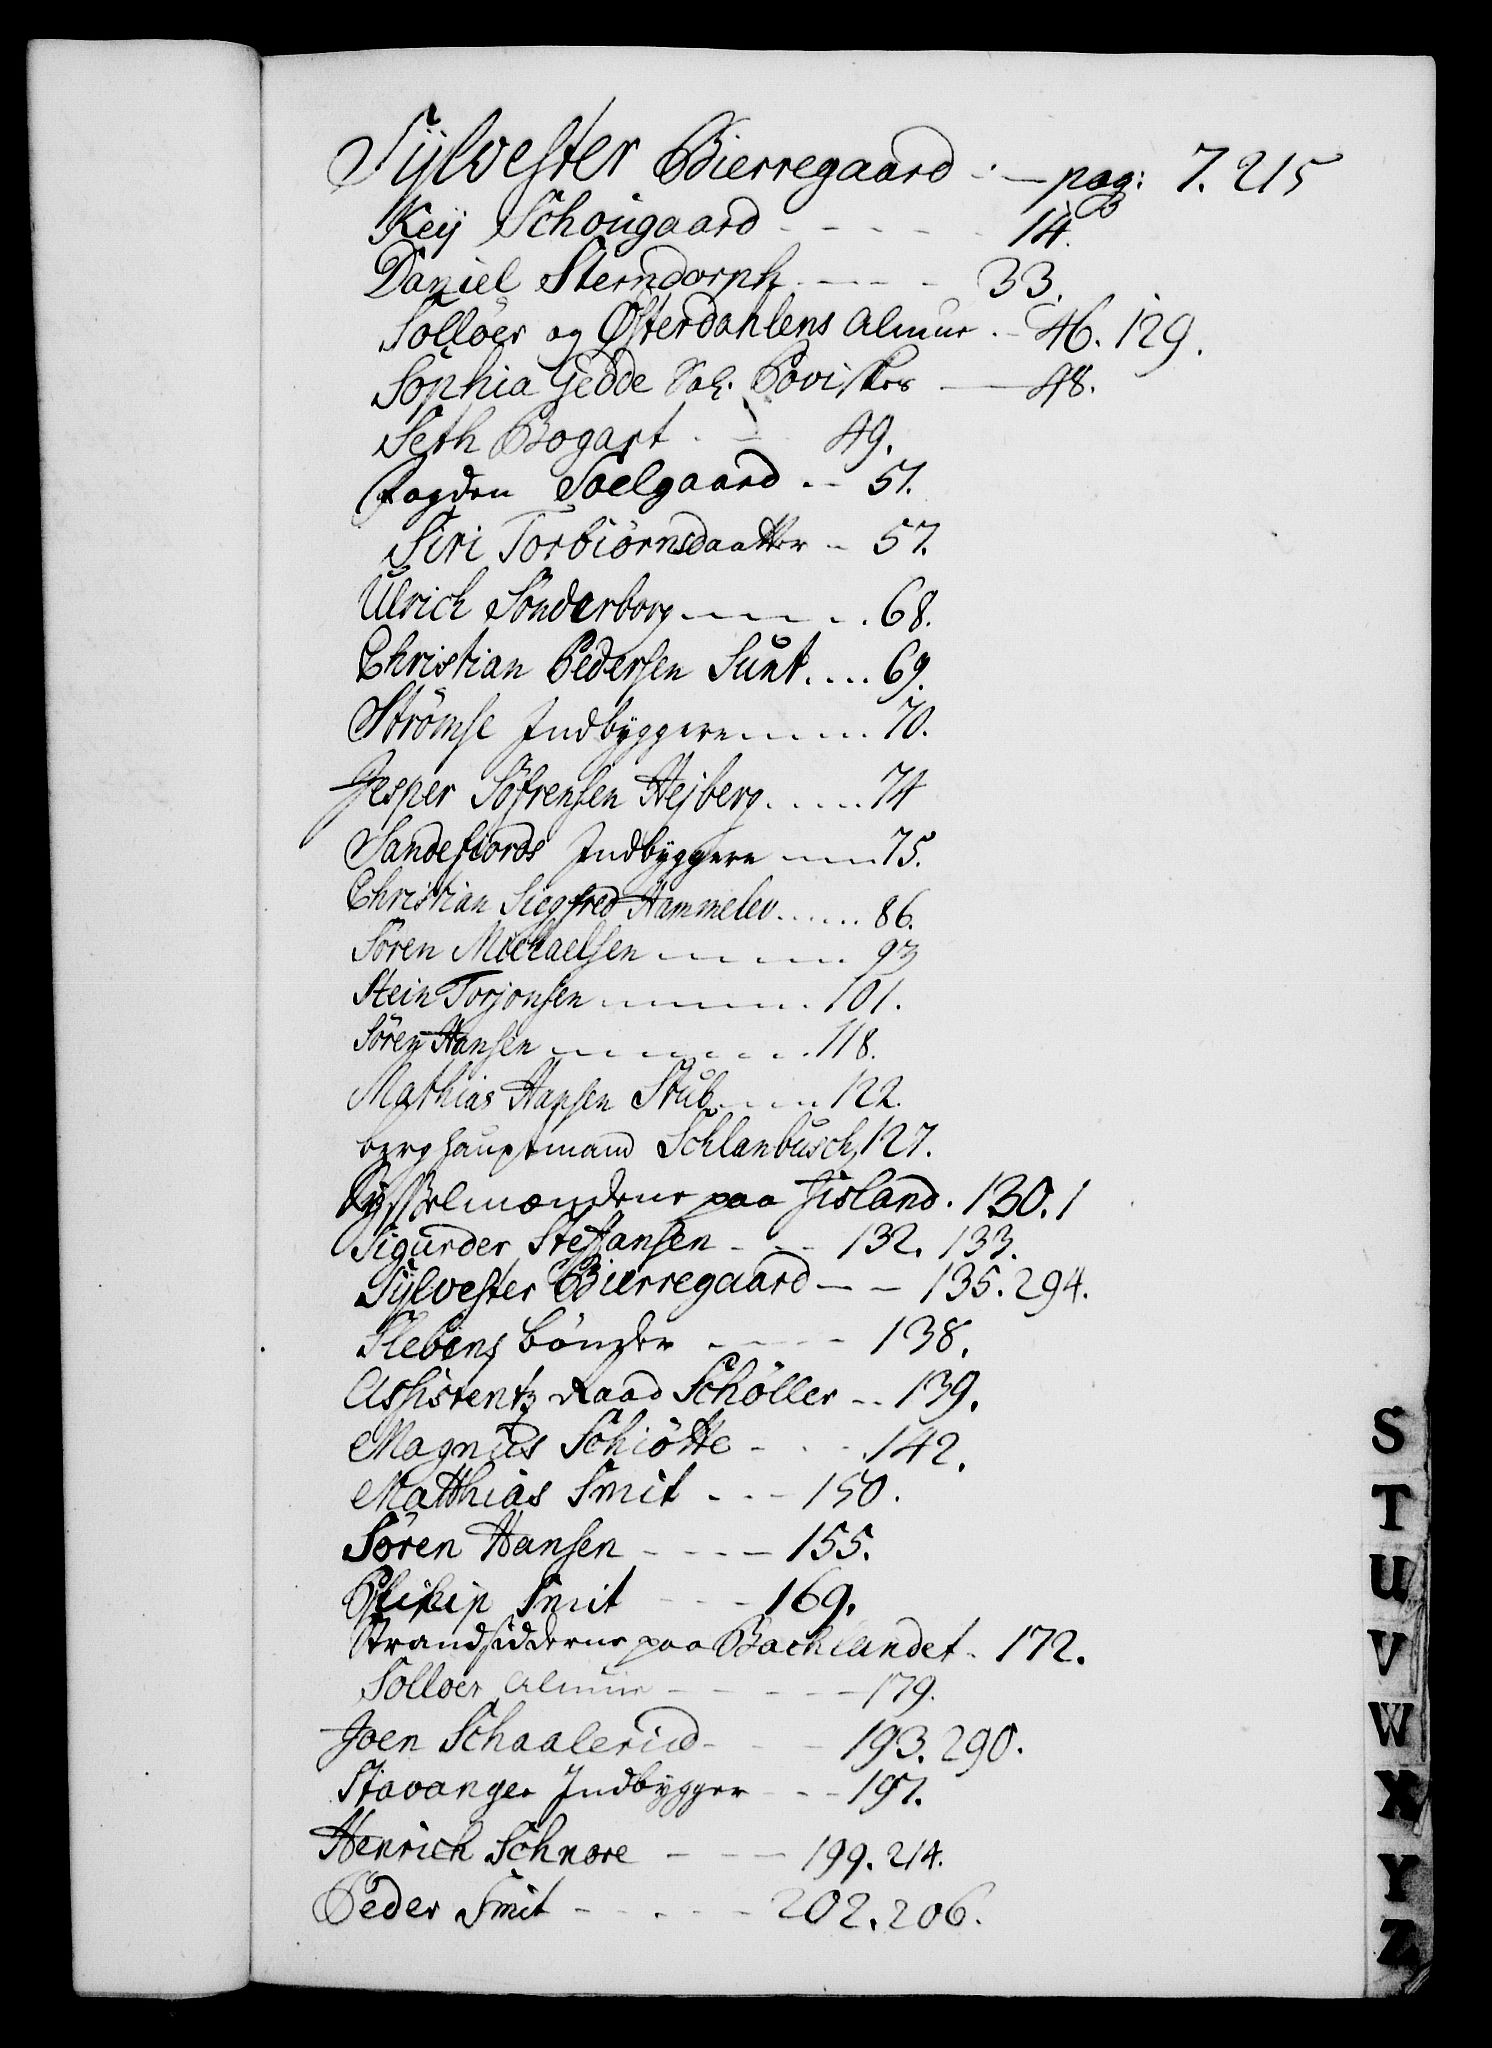 Sÿlvester Bierregaard - — pag: 7. 215
Keÿ Schougaard - - - - - 14.
Daniel Sterndorph - - - - 33.
Solløer og Østerdahlens Almue . - 46. 129.
Sophia Gedde Sal. Povisches — 48.
Seth Bogart . - 49.
fogden Soelgaard . - 51.
Siri Torbiørnsdaatter - 57.
Ulrich Sønderborg - - - - . 68.
Christian Pedersen Sunt . . . . 69.
Strømsø Indbyggere - - - . 70.
Jesper Søfrensen Hejberg . . . . . 74
Sandefiords Indbyggere - - - 75.
Christian Siegfred Hammelev . . . . . . 86.
Søren Michaelsen - - - - . 93
Stein Torjonsen - - - - - . 101.
Søren Hansen - - - - - - . 118.
Mathias Hansen Stub - - - - 122.
berghauptmand Schlanbusch, 127.
Sysselmændene paa Jisland . 130. 1
Sigurder Steffansen - - - 132. 133.
Sÿlvester Bierregaard — - 135. 294.
Slebens bønder - - - - 138.
Assistentz Raad Schøller - - 139.
Magnus Schiøtte - - - 142.
Matthias Smit - - - 150.
Søren Hansen - - - - 155.
Philip Smit - - - 169.
Strandsidderne paa Bachlandet . 172.
Solloer Almue - - - - - 179.
Joen Schaalerud - - - 193. 290.
Stavanger Indbygger - - - 197.
Henrich Schnore - - - 199. 214.
Peder Smit - - - - - 202. 206.
S
T
U
V
W
X
Y
Z